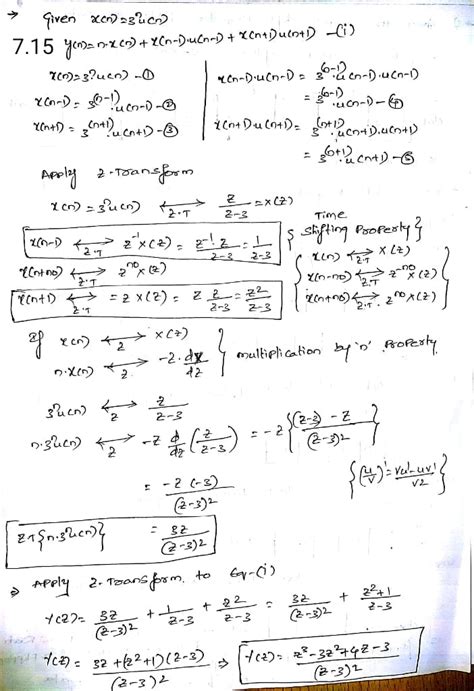 → Given x(n)=3ⁿu(n)
7.15 y(n)= n·x(n) + x(n-1)·u(n-1) + x(n+1)u(n+1) -(i)
x(n)=3ⁿu(n) -①
x(n-1) = 3^(n-1)·u(n-1) -②
x(n+1) = 3^(n+1)·u(n+1) -③
x(n-1)·u(n-1) = 3^(n-1)·u(n-1)·u(n-1)
= 3^(n-1)·u(n-1) -④
x(n+1)·u(n+1) = 3^(n+1)·u(n+1)·u(n+1)
= 3^(n+1)·u(n+1) -⑤
Apply z-Transform
x(n)=3ⁿu(n) ⟷ z.T z/z-3 = x(z)
x(n-1) ⟷ z.T z⁻¹x(z) = z⁻¹·z/z-3 = 1/z-3
x(n+n0) ⟷ z.T z^n0 x(z)
x(n+1) ⟷ z.T = z x(z) = z z/z-3 = z²/z-3
Time
{ Shifting Property}
x(n) ⟷ z.T x(z)
x(n-n0) ⟷ z.T z^-n0 x(z)
x(n+n0) ⟷ z.T z^n0 x(z)
If x(n) ⟷ z x(z)
n·x(n) ⟷ z -z·dx/dz } multiplication by 'n' Property
3ⁿu(n) ⟷ z z/z-3
n·3ⁿu(n) ⟷ z -z d/dz (z/z-3) = -z {(z-3) - z/(z-3)²}
= -z(-3)/(z-3)²
{(u/v)' = vu'-uv'/v2}
z T{n·3ⁿu(n)} = 3z/(z-3)2
⇒ Apply z-Transform to Eq-(i)
Y(z) = 3z/(z-3)2 + 1/z-3 + z2/z-3 = 3z/(z-3)2 + z²+1/z-3
Y(z) = 3z+(z²+1)(z-3)/(z-3)2 ⇒ Y(z) = z³-3z²+4z-3/(z-3)2